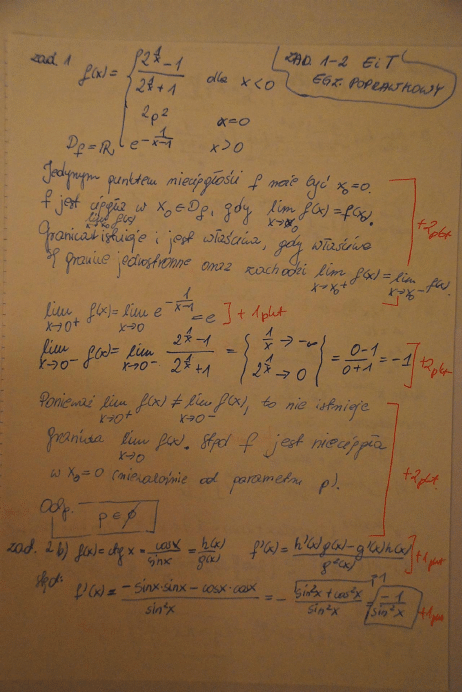 zad. 1
ZAD. 1-2 EiT
EGZ. POPRAWKOWY
f(x) = { (2^{1/x} - 1)/(2^{1/x} + 1) dla x < 0
2p² x = 0
D_f = ℝ e^{-1/(x-1)} x > 0
Jedynym punktem nieciągłości f może być x₀ = 0.
f jest ciągła w x₀ ∈ D_f, gdy lim_{x→x₀} f(x) = f(x₀).
Granica lim_{x→x₀} f(x) istnieje i jest właściwa, gdy właściwe
są granice jednostronne oraz zachodzi lim_{x→x₀⁺} f(x) = lim_{x→x₀⁻} f(x).
+2pkt
lim_{x→0⁺} f(x) = lim_{x→0} e^{-1/(x-1)} = e ] +1pkt
lim_{x→0⁻} f(x) = lim_{x→0⁻} (2^{1/x} - 1)/(2^{1/x} + 1) = { 1/x → -∞ 2^{1/x} → 0 } = (0-1)/(0+1) = -1 ] +2pkt
Ponieważ lim_{x→0⁺} f(x) ≠ lim_{x→0⁻} f(x), to nie istnieje
granica lim_{x→0} f(x). Stąd f jest nieciągła
w x₀ = 0 (niezależnie od parametru p).
+2pkt
Odp. p ∈ ∅
zad. 2 b) f(x) = ctg x = cosx/sinx = h(x)/g(x) f'(x) = (h'(x)g(x) - g'(x)h(x))/g²(x) ] +1pkt
Stąd:
f'(x) = (-sinx·sinx - cosx·cosx)/sin²x = - (sin²x + cos²x)/sin²x = -1/sin²x +1pkt